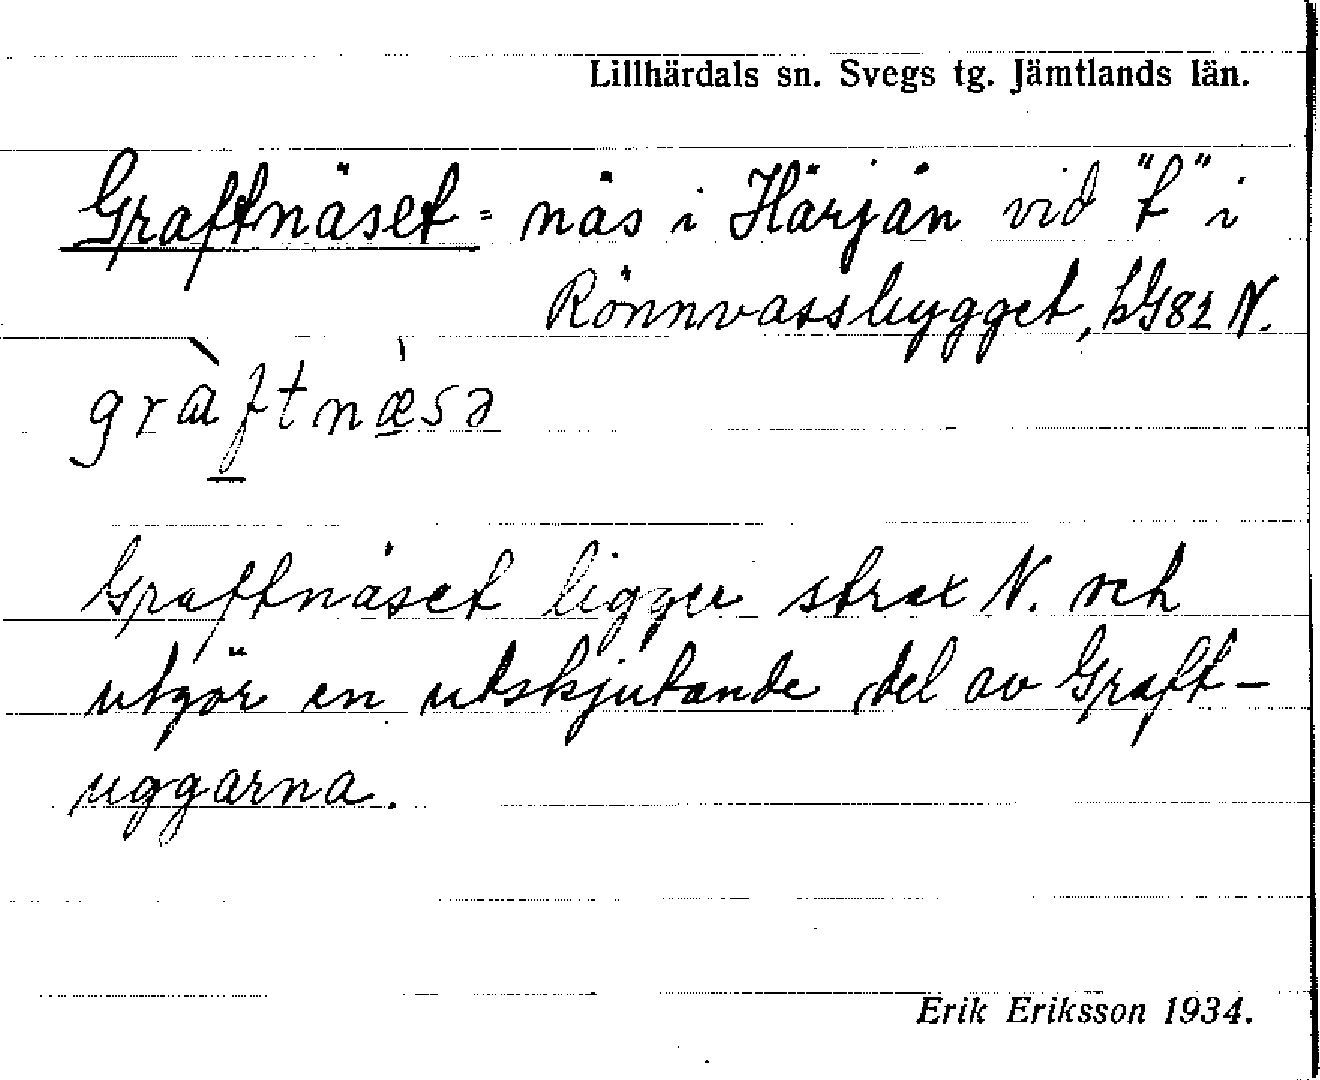 Lillhärdals sn. Svegs tg. Jämtlands län.
Graftnäset = näs i Härjån vid "t" i
Rönnvassbygget, bG82 N.
gràftnæsə
Graftnäset ligger strax N. och
utgör en utskjutande del av Graft-
uggarna.
Erik Eriksson 1934.